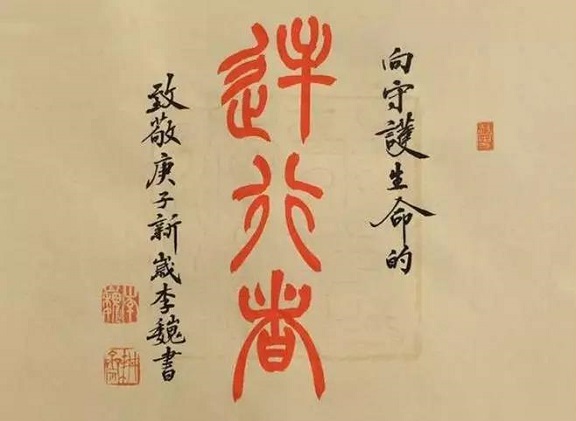 向守護生命的
逆行者
致敬庚子新歲李巍書